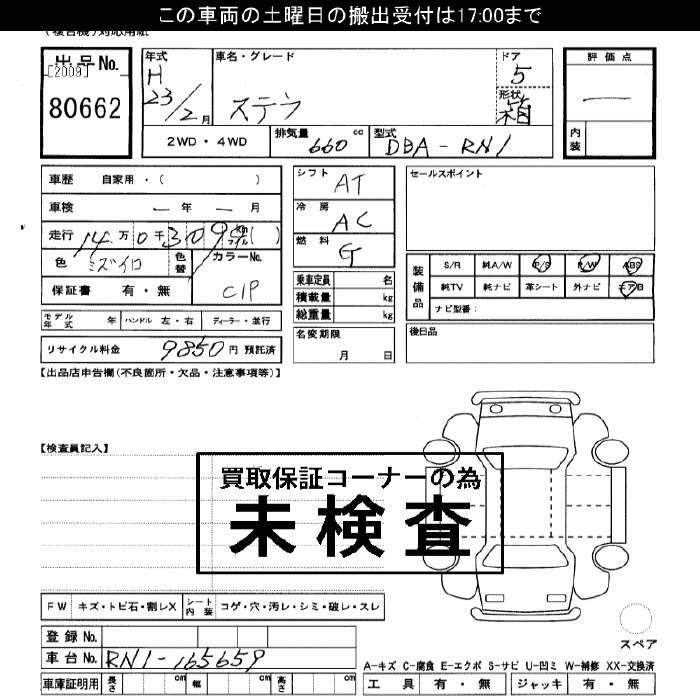 この車両の土曜日の搬出受付は17:00まで
(複合機)対応用紙
出品No.
[2009]
80662
年式
H
23/2月
車名・グレード
ステラ
ドア
5
形状
箱
2WD・4WD
排気量
660 cc
型式
DBA-RN1
評価点
—
内装
車歴 自家用・( )
車検 — 年 — 月
走行 14万0千309 km マイル ( )
色 ミズイロ
色替
カラーNo.
C1P
保証書 有・無
モデル年式 年 ハンドル 左・右 ディーラー・並行
リサイクル料金 9850円 預託済
シフト
AT
冷房
AC
燃料
G
乗車定員 名
積載量 kg
総重量 kg
名変期限
月 日
セールスポイント
装備品
S/R 純A/W P/S P/W ABS
純TV 純ナビ 革シート 外ナビ エアB
ナビ型番:
後日品
【出品店申告欄(不良箇所・欠品・注意事項等)】
【検査員記入】
買取保証コーナーの為
未検査
FW キズ・トビ石・割レX シート内装 コゲ・穴・汚レ・シミ・破レ・スレ
登録No.
車台No. RN1-165659
車庫証明用 長さ cm 幅 cm 高さ cm
スペア
A-キズ C-腐食 E-エクボ S-サビ U-凹ミ W-補修 XX-交換済
工具 有・無 ジャッキ 有・無